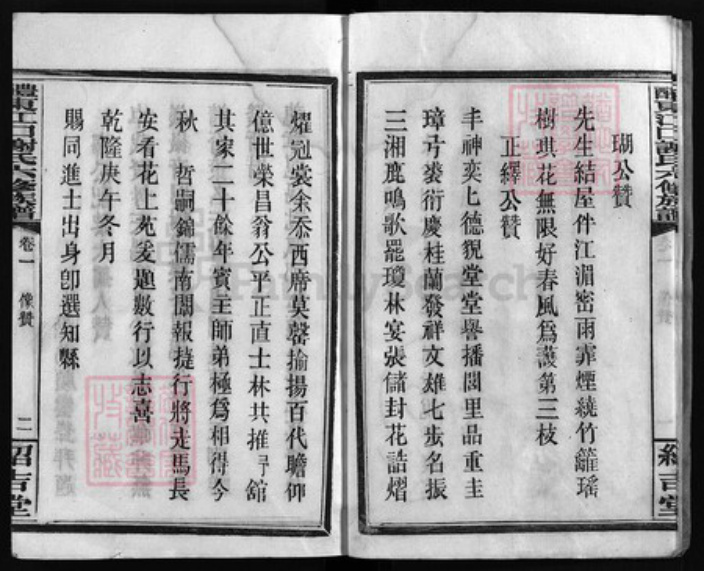 瑚公贊
先生結屋伴江湄密雨霏煙繞竹籬瑤
樹琪花無限好春風爲護第三枝
正繹公贊
丰神奕乀德貌堂堂譽播閭里品重圭
璋弓裘衍慶桂蘭發祥文雄七步名振
三湘鹿鳴歌罷瓊林宴張儲封花誥熠
燿冠裳余忝西席莫罄揄揚百代瞻仰
億世榮昌翁公平正直士林共推予舘
其家二十餘年賓主師弟極爲相得今
秋 哲嗣錦儒南闈報捷行將走馬長
安看花上苑爰題數行以志喜
乾隆庚午冬月
賜同進士出身卽選知縣
醴東江口謝氏六修族譜
卷一 像贊
二
紹吉堂
醴東江口謝氏六修族譜
FamilySearch